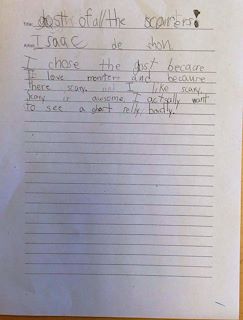 Title: Gosts of all the scariers!
Isaac de shon
I chose the gost becaue
I love monters and because
there scary. and I like scary.
scary is awsome. I actsally want
to see a ghost relly, badly.